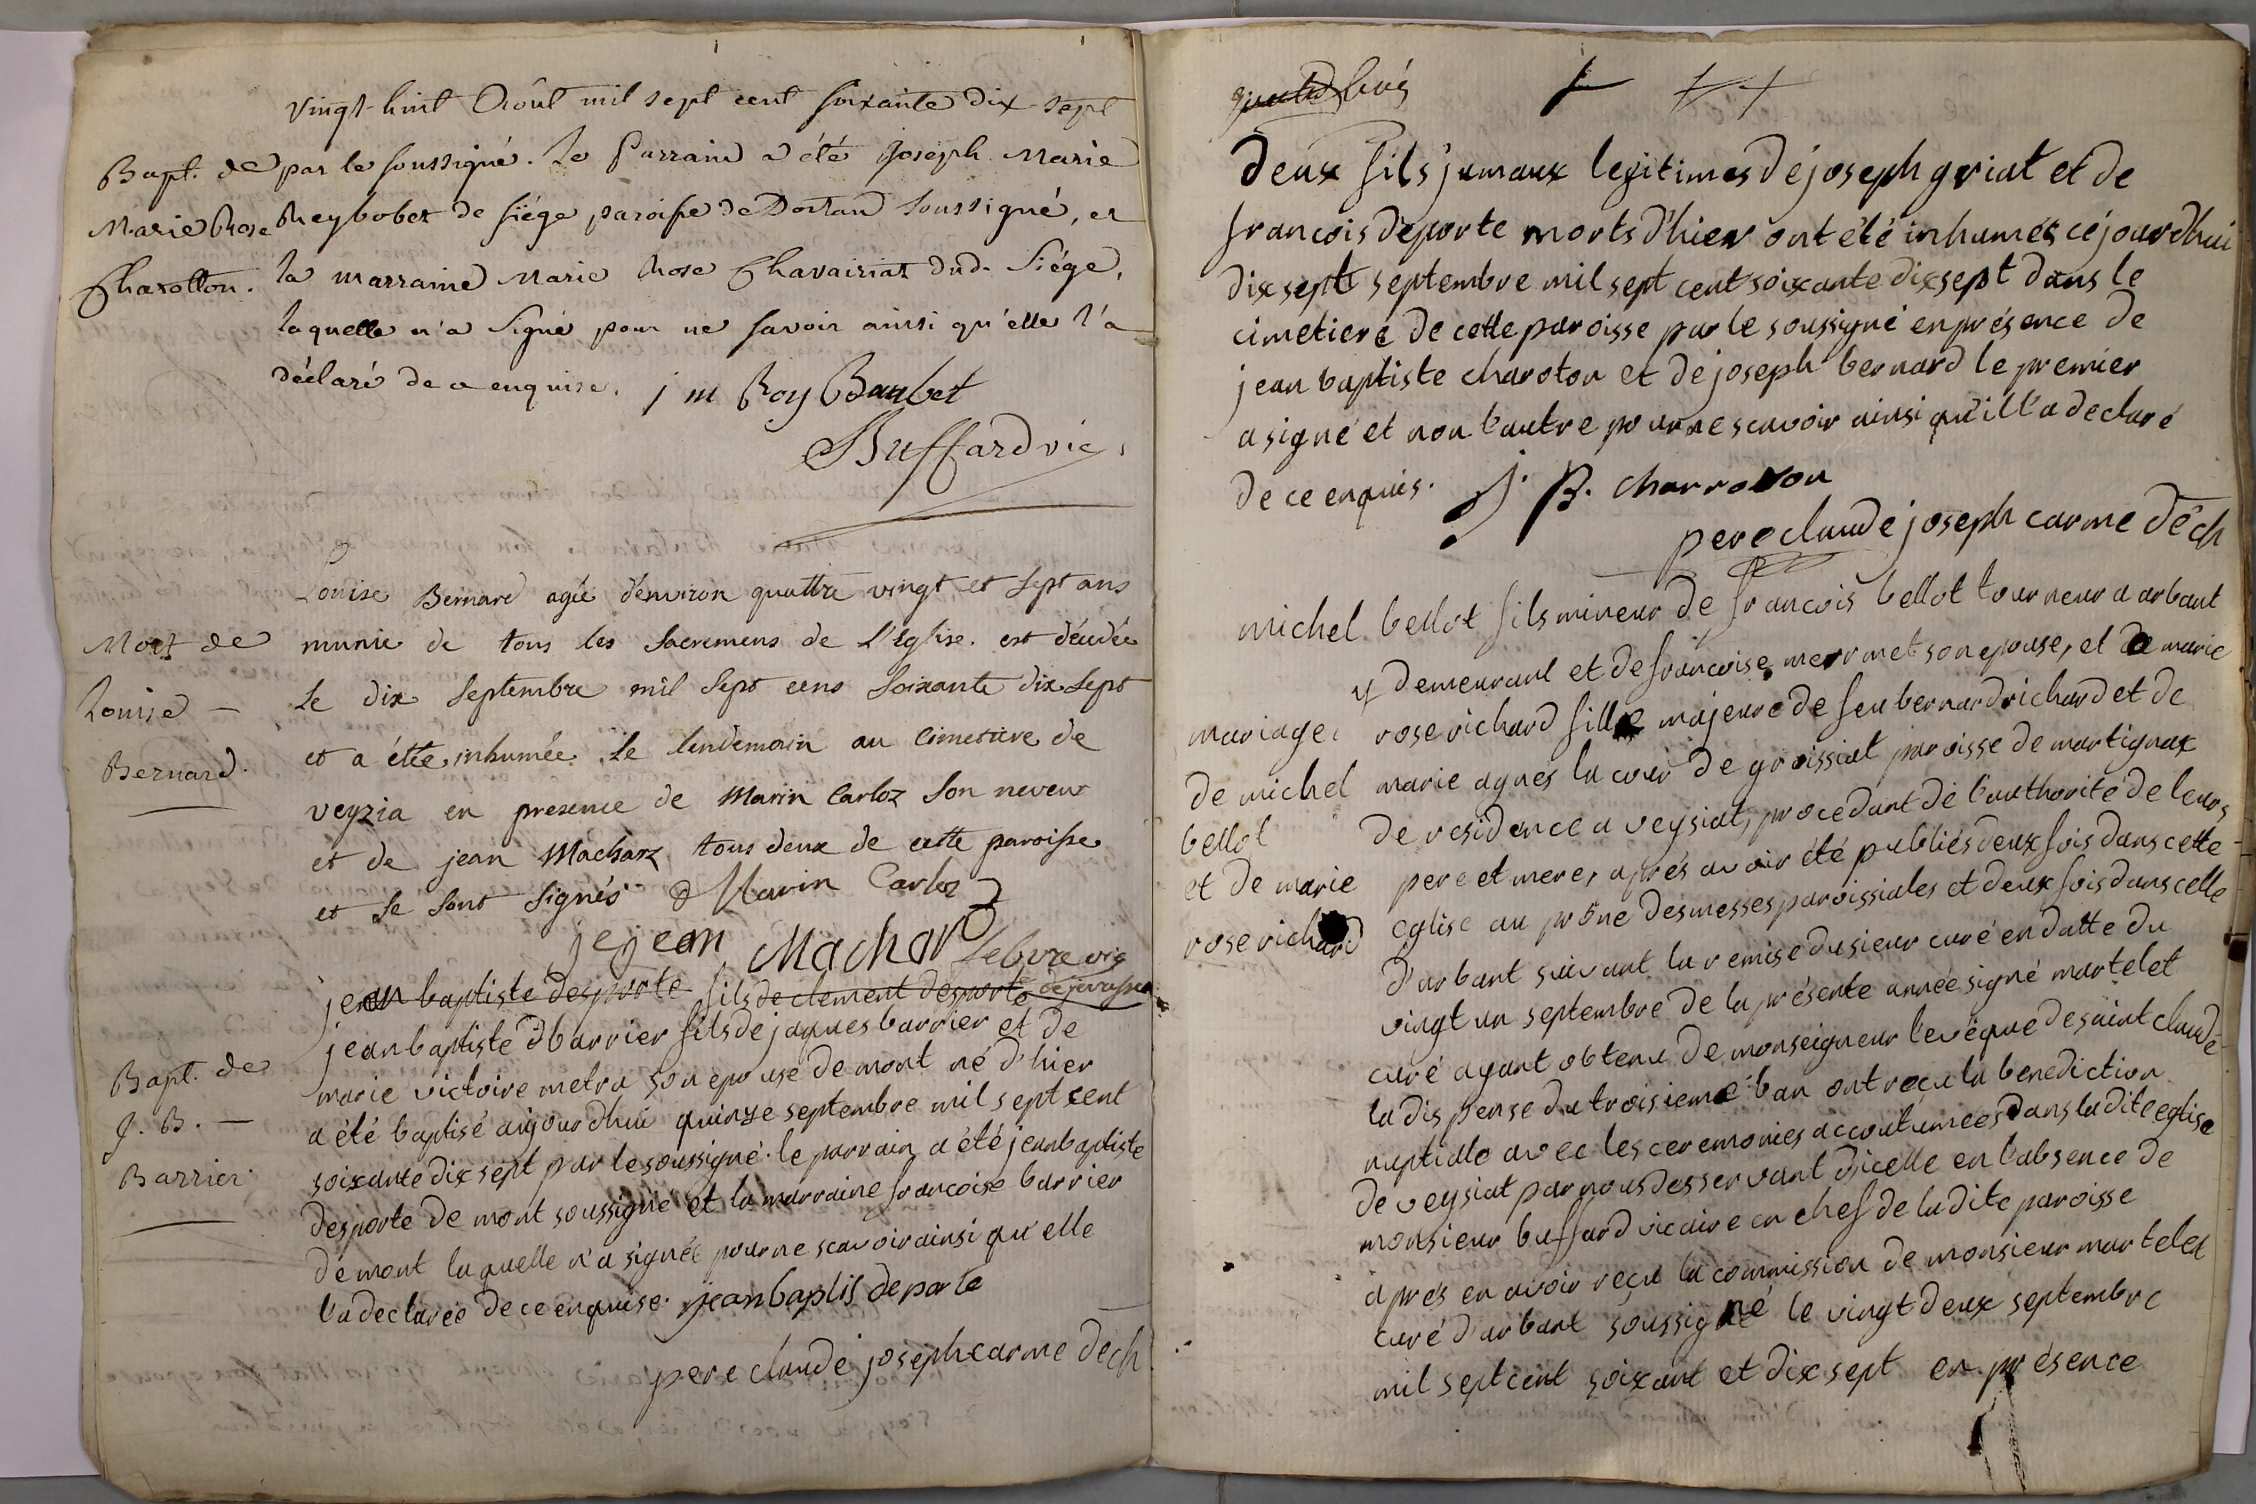 vingt-huit Août mil sept cent soixante dix-sept
Bapt. de
Marie Rose
Charotton.
par le soussigné. Le Parrain a été Joseph Marie
Reybobet de siége paroisse de Dortan soussigné, et
la marraine Marie Rose Chavairiat dud. Siége,
laquelle n'a signé pour ne savoir ainsi qu'elle l'a
déclaré de ce enquise. j m Roy Baubet
Buffard vic.
Mort de
Louise –
Bernard.
Louise Bernard agée d'environ quattre vingt et sept ans
munie de tous les sacremens de L'Eglise. est décédée
le dix septembre mil sept cens soixante dix sept
et a étée inhumée le lendemain au cimetiere de
veyzia en presence de Marin Carloz son neveu
et de jean Macharz tous deux de cette paroisse
et se sont signés Marin Carloz
je jean Machar
jean baptiste desporte fils de clement desporte
Bapt. de
J. B. –
Barrier.
jean baptiste barrier fils de jaques barrier et de
marie victoire metra son epouse de mont né d'hier
a été baptisé aujourdhui quinze septembre mil sept cent
soixante dix sept par le soussigné. le parrain a été jean baptiste
desporte de mont soussigné et la marraine francoise barrier
de mont laquelle n'a signée pour ne scavoir ainsi qu'elle
l'a declarée de ce enquise. jean baptis deporte
pere claude joseph carme dech
deux fils jumaux legitimes de joseph griat et de
francois deporte morts d'hier ont été inhumés cejourdhui
dix sept septembre mil sept cent soixante dix sept dans le
cimetiere de cette paroisse par le soussigné en présence de
jean baptiste charoton et de joseph bernard le premier
a signé et non l'autre pour ne scavoir ainsi qu'il l'a declaré
de ce enquis. J. B. charroton
pere claude joseph carme dech
mariage
de michel
bellot
et de marie
rose richard
michel bellot fils mineur de francois bellot tourneur a arbant
y demeurant et de francoise mermet son epouse, et de marie
rose richard fille majeure de feu bernard richard et de
marie agnes la cour de groissiat paroisse de martignat
de residence a veysiat, procedant de l'authorité de leurs
pere et mere, aprés avoir été publiés deux fois dans cette
eglise au prône des messes paroissiales et deux fois dans celle
d'arbant suivant la remise du sieur curé en datte du
vingt un septembre de la présente année signé martelet
curé ayant obtenu de monseigneur l'evêque de saint claude
la dispense du troisieme ban ont reçu la benediction
nuptiale avec les ceremonies accoutumées dans la dite eglise
de veysiat par nous desservant d'icelle en l'absence de
monsieur buffard vicaire en chef de la dite paroisse
après en avoir reçu la commission de monsieur martelet
curé d'arbant soussigné le vingt deux septembre
mil sept cent soixant et dix sept en présence